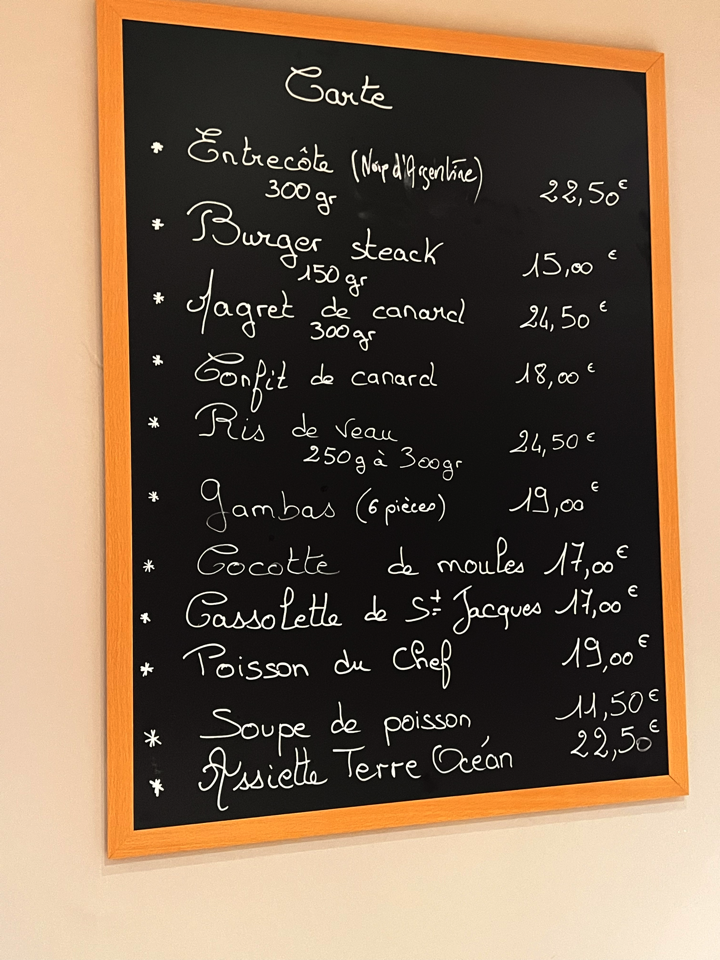 Carte
* Entrecôte (Noix d'Argentine) 22,50€
300 gr
* Burger steack 15,00 €
150 gr
* Magret de canard 24,50 €
300 gr
* Confit de canard 18,00 €
* Ris de veau 24,50 €
250 g à 300 gr
* Gambas (6 pièces) 19,00 €
* Cocotte de moules 17,00 €
* Cassolette de St Jacques 17,00 €
* Poisson du Chef 19,00 €
* Soupe de poisson 11,50 €
* Assiette Terre Océan 22,50 €